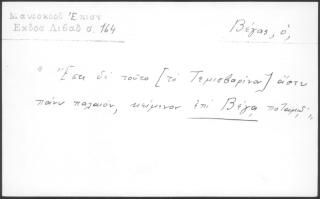 Μανασκορδ Ἐπιστ
Εκδος Λιβαδ σ. 164
Βέγας, ὁ,
"Ἔστι δὲ τοῦτο [τὸ Τεμεσβαρίνον] ἄστυ
πάνυ παλαιὸν, κείμενον ἐπὶ Βέγᾳ ποταμῷ",